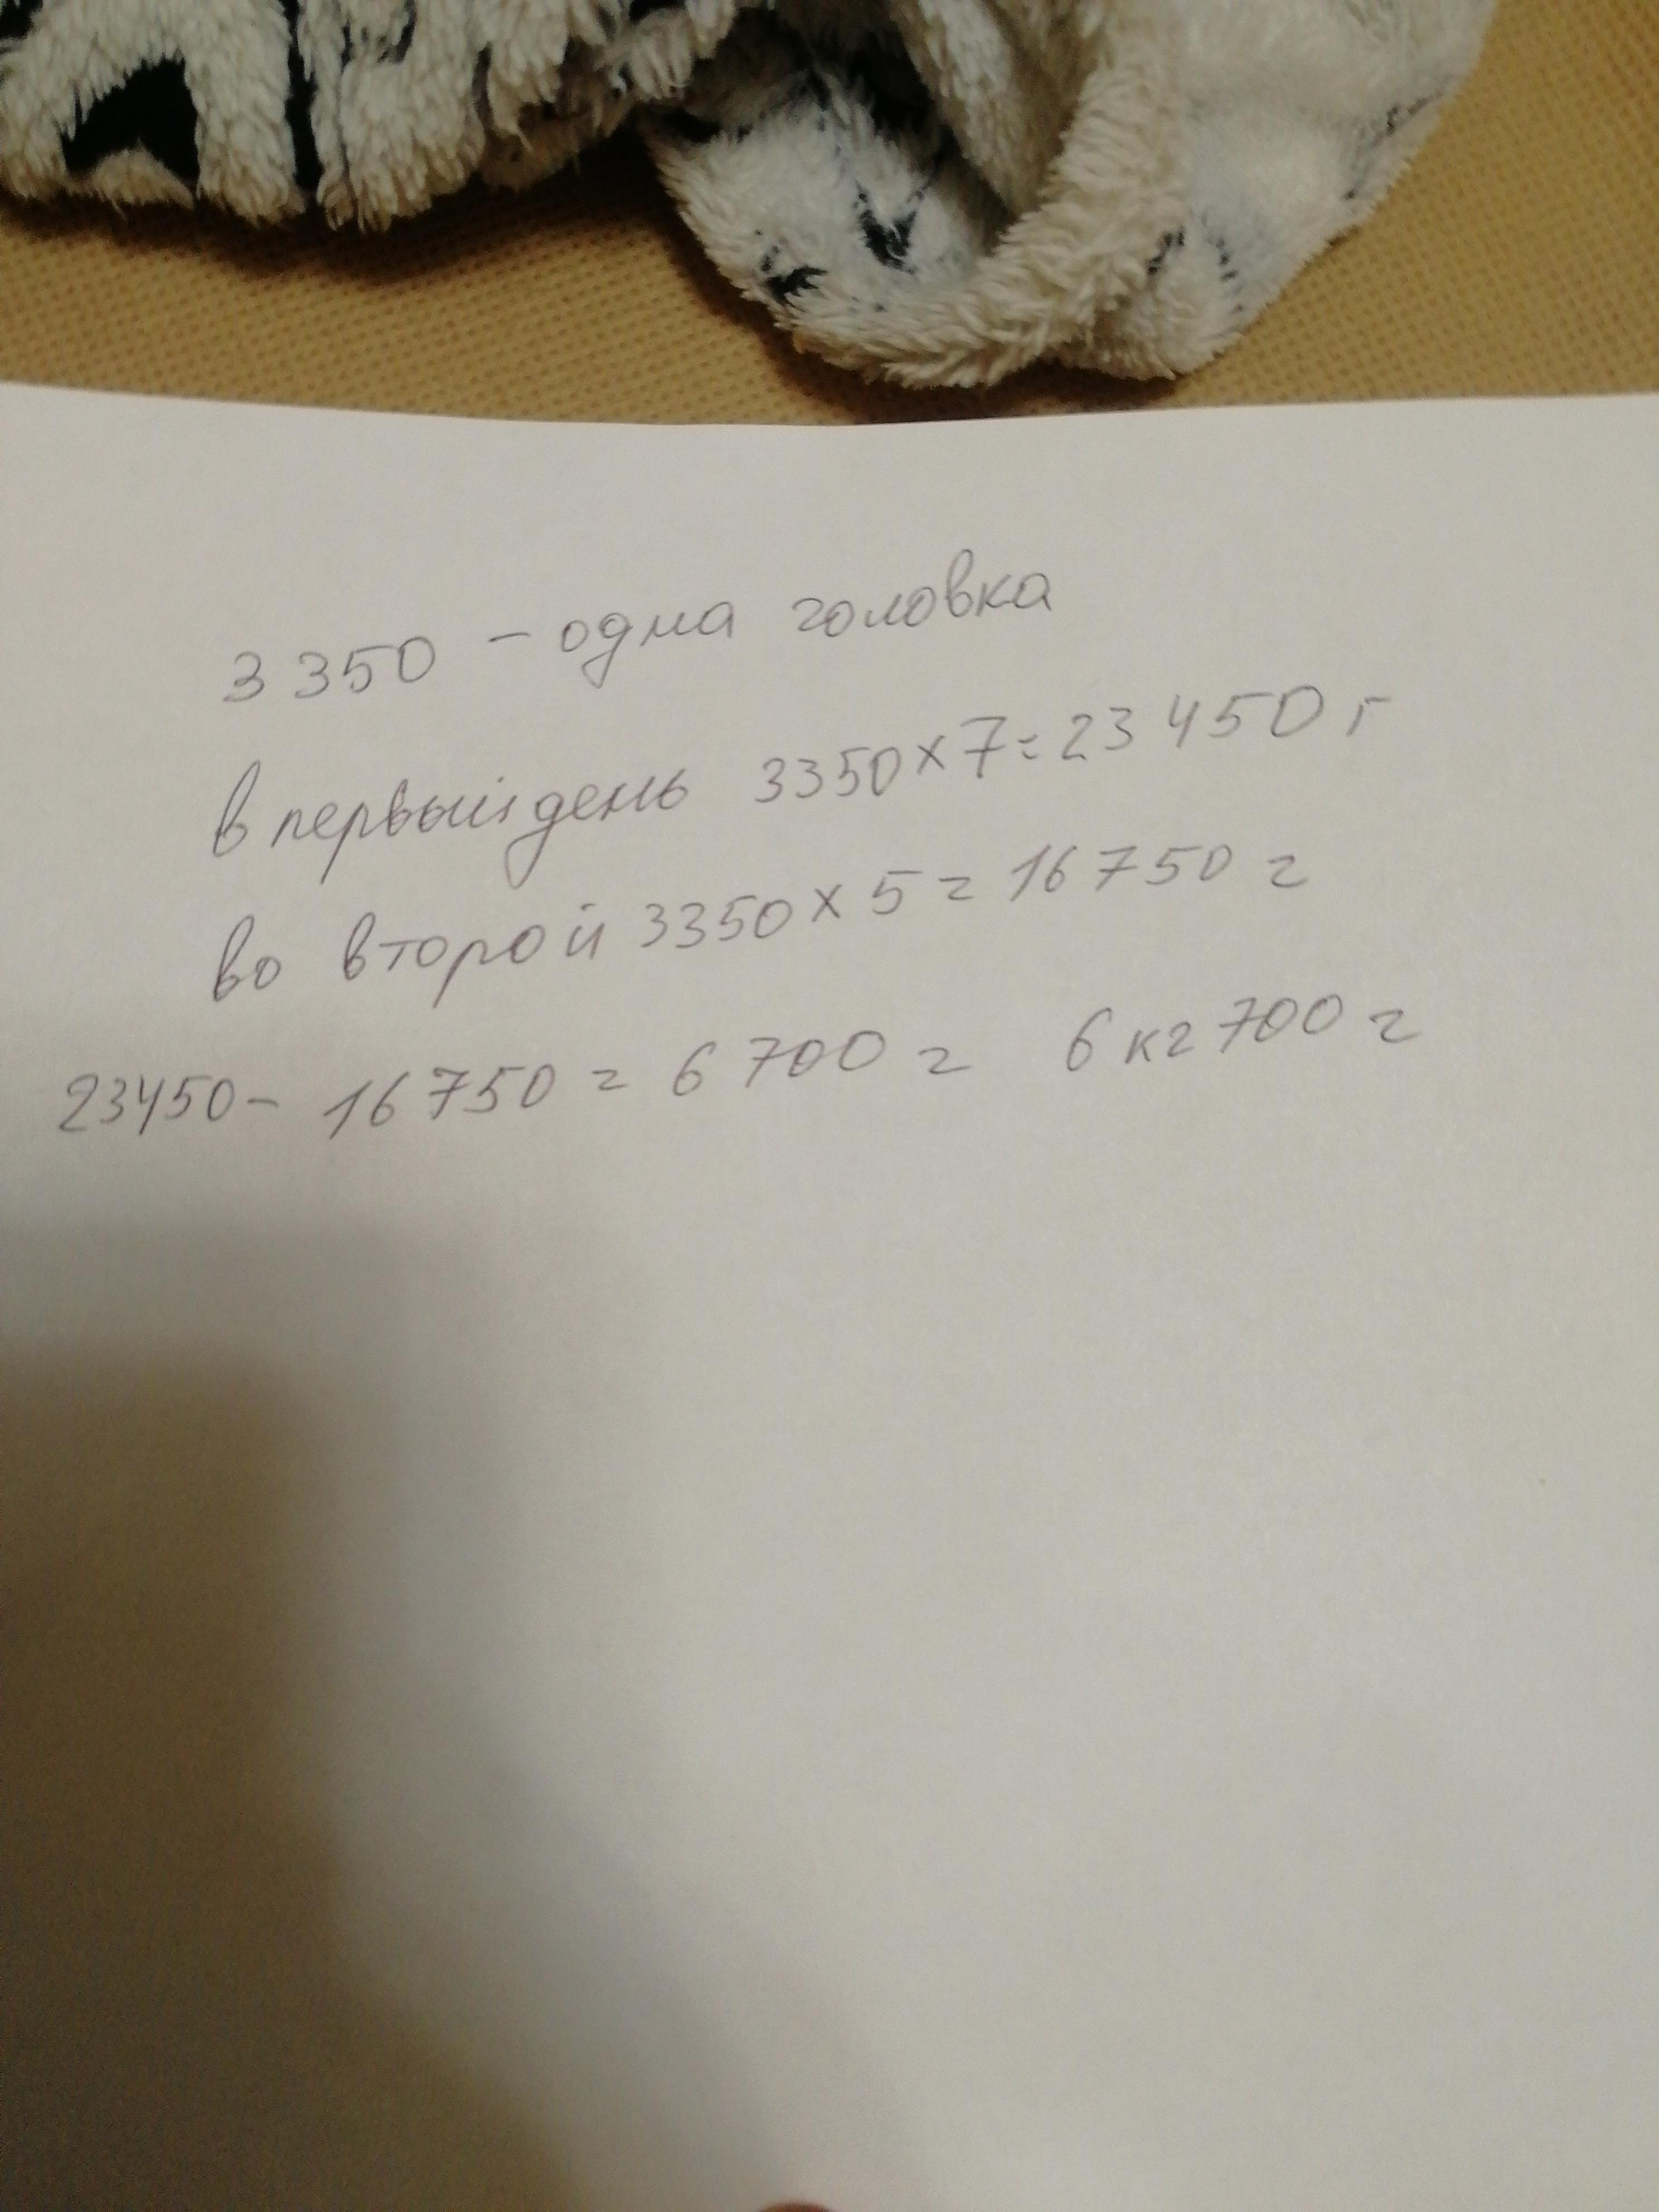 3 350 - одна головка
в первый день 3350 x 7 = 23 450 г
во второй 3350 x 5 = 16 750 г
23450 - 16 750 = 6 700 г 6 кг 700 г